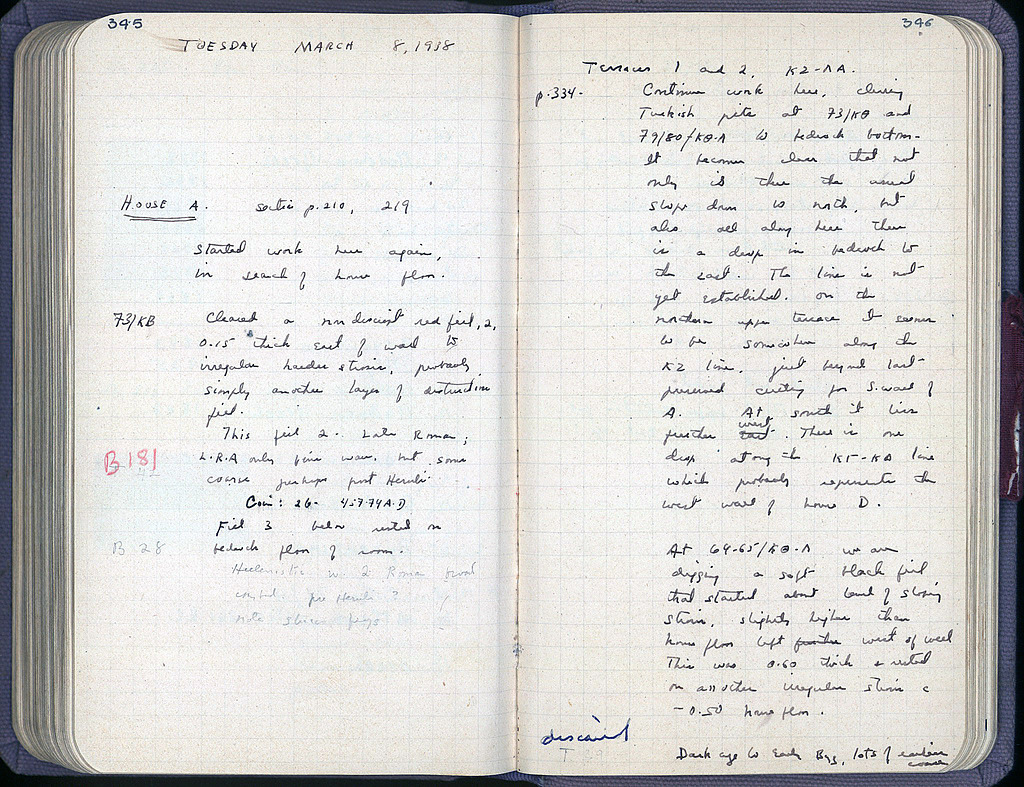 345
TUESDAY MARCH 8, 1938
HOUSE A. section p.210, 219
Started work here again,
in search of house floor.
73/KB Cleared a non descript red fill, 2,
0.15 thick east of wall to
irregular harder strosis, probably
simply another layer of destruction
fill.
This fill 2. Late Roman;
B 181 L.R.A only fine ware, but some
coarse perhaps post Heruli
Coin: 26- 457-74 A.D
Fill 3 below rested on
B 28 bedrock floor of room.
Hellenistic w. 2 Roman
pre Heruli?
note
346
Terraces 1 and 2, KZ-ΛA.
p.334. Continue work here, clearing
Turkish pits at 73/KΘ and
79/80/KΘ-Λ to bedrock bottom-
It becomes clear that not
only is there the usual
slope down to north, but
also all along here there
is a drop in bedrock to
the east. The line is not
yet established. On the
northern upper terrace it seems
to be somewhere along the
KZ line, just beyond last
preserved cutting for S. wall of
A. At south it lies
further east west. There is one
drop along the KΓ-KA line
which probably represents the
west wall of house D.
At 64-65/KΘ-Λ we are
digging a soft black fill
that started about level of strong
strosis, slightly higher than
house floor left further west of well
This was 0.60 thick & rested
on another irregular strosis c
-0.50 house floor.
discard
T 29
Dark age to Early Byz, lots of
coarse